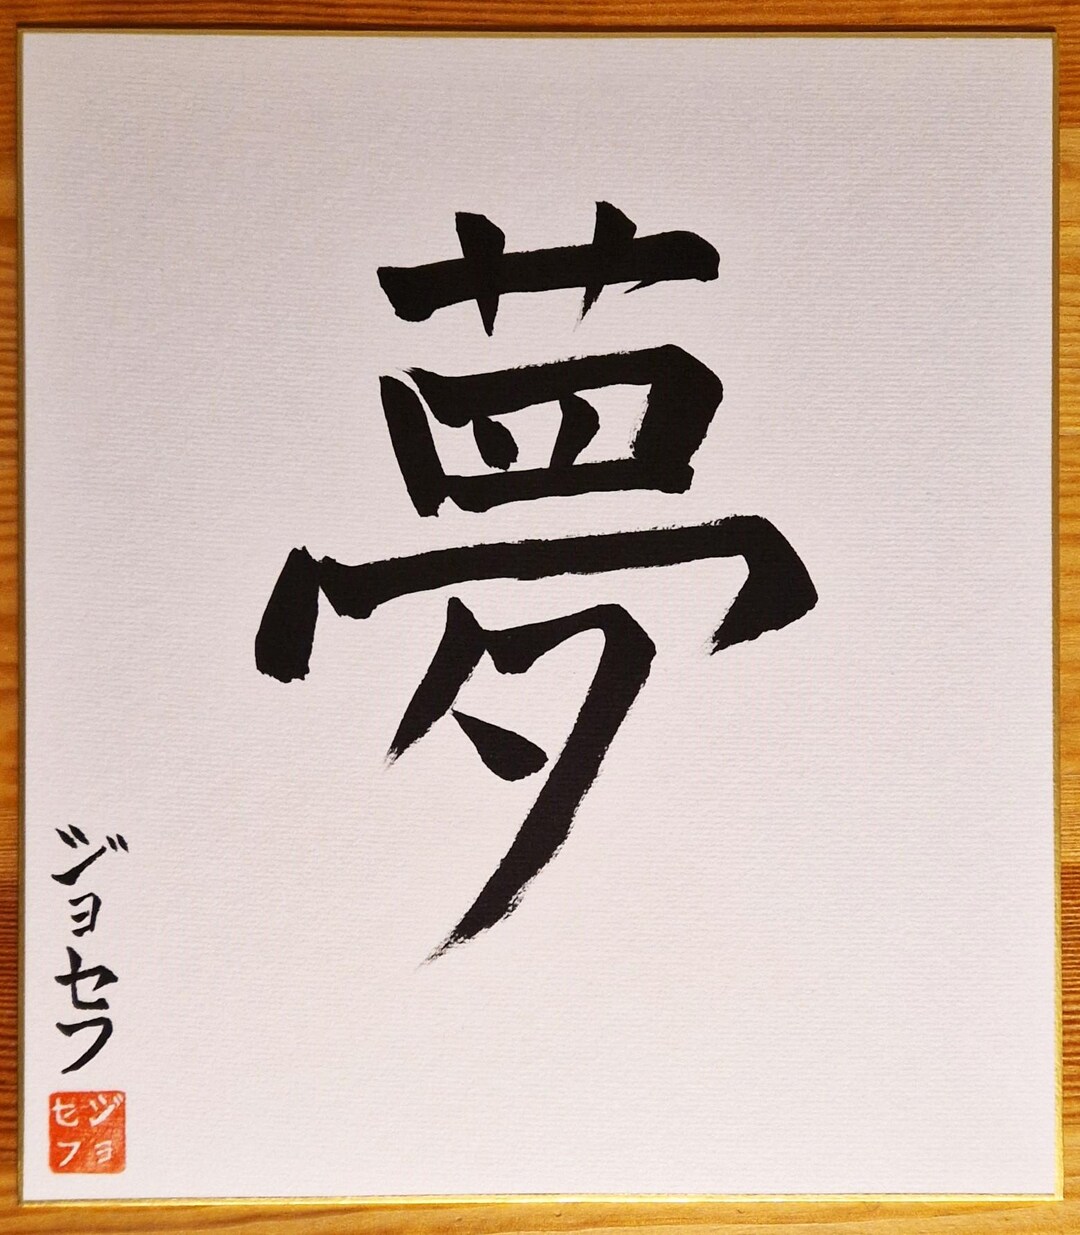 夢
ジョセフ
ジョ
セフ